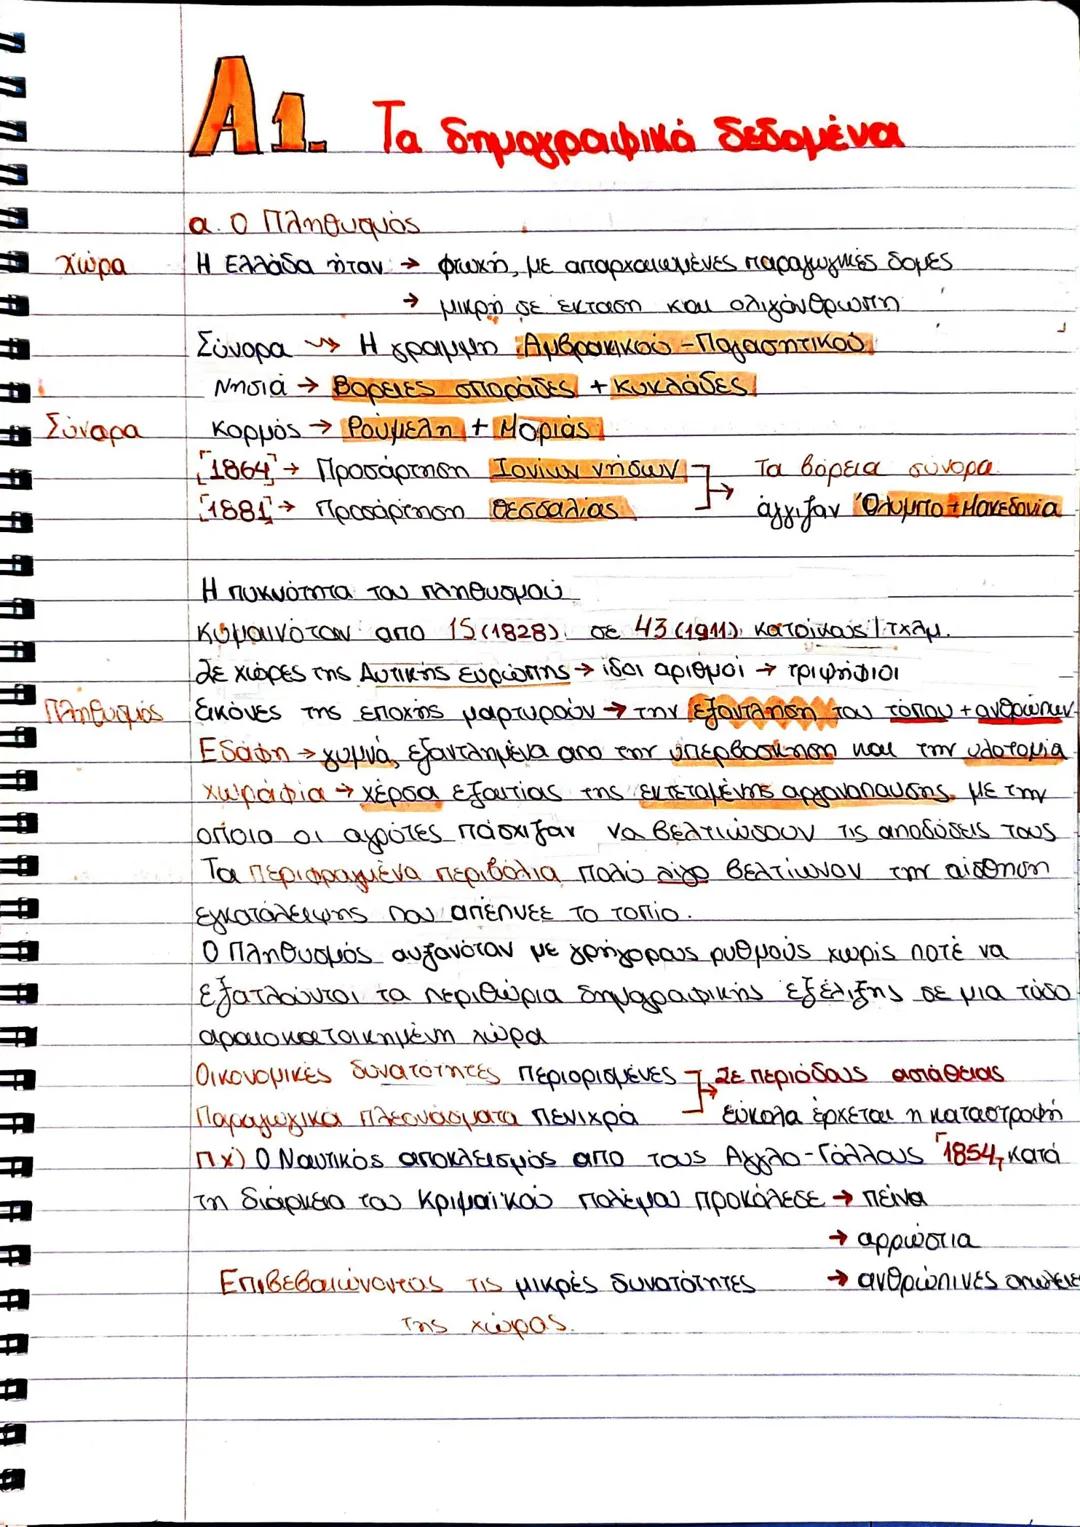 A1. Τα δημογραφικά δεδομένα
α. Ο Πληθυσμός
Χώρα Η Ελλάδα ήταν → φτωχή, με απαρχαιωμένες παραγωγικές δομές
→ μικρή σε έκταση και ολιγάνθρωπη
Σύνορα → Η γραμμη Αμβρακικού - Παγασητικού
Νησιά → Βόρειες σποράδες + Κυκλάδες
Σύνορα Κορμός → Ρούμελη + Μοριάς
[1864] → Προσάρτηση Ιονίων νήσων → Τα βόρεια σύνορα
[1881] → Προσάρτηση Θεσσαλίας άγγιζαν Όλυμπο + Μακεδονία
Η πυκνότητα του πληθυσμού
Κυμαινόταν από 15 (1828) σε 43 (1911) κατοίκους / τχλμ.
Σε χώρες της Δυτικής ευρώπης → ίδιοι αριθμοί → τριψήφιοι
Πληθυσμός Εικόνες της εποχής μαρτυρούν → την εξάντληση του τόπου + ανθρώπων
Εδάφη → γυμνά, εξαντλημένα απο την υπερβόσκηση και την υλοτομία
χωράφια → χέρσα εξαιτίας της εκτεταμένης αγρανάπαυσης, με την
οποία οι αγρότες πάσχιζαν να βελτιώσουν τις αποδόσεις τους
Τα περιφραγμένα περιβόλια πολύ λίγο βελτίωναν την αίσθηση
εγκατάλειψης που απέπνεε το τοπίο.
Ο Πληθυσμός αυξανόταν με γρήγορους ρυθμούς χωρίς ποτέ να
εξατλούνται τα περιθώρια δημογραφικής εξέλιξης σε μια τόσο
αραιοκατοικημένη χώρα
Οικονομικές δυνατότητες περιορισμένες → Σε περιόδους αστάθειας
Παραγωγικά πλεονάσματα πενιχρά εύκολα έρχεται η καταστροφή
πχ) Ο Ναυτικός αποκλεισμός απο τους Αγγλο-Γάλλους 1854, κατά
τη διάρκεια του Κριμαϊκού πολέμου προκάλεσε → πείνα
→ αρρώστια
Επιβεβαιώνοντας τις μικρές δυνατότητες → ανθρώπινες απώλειε
της χώρας.